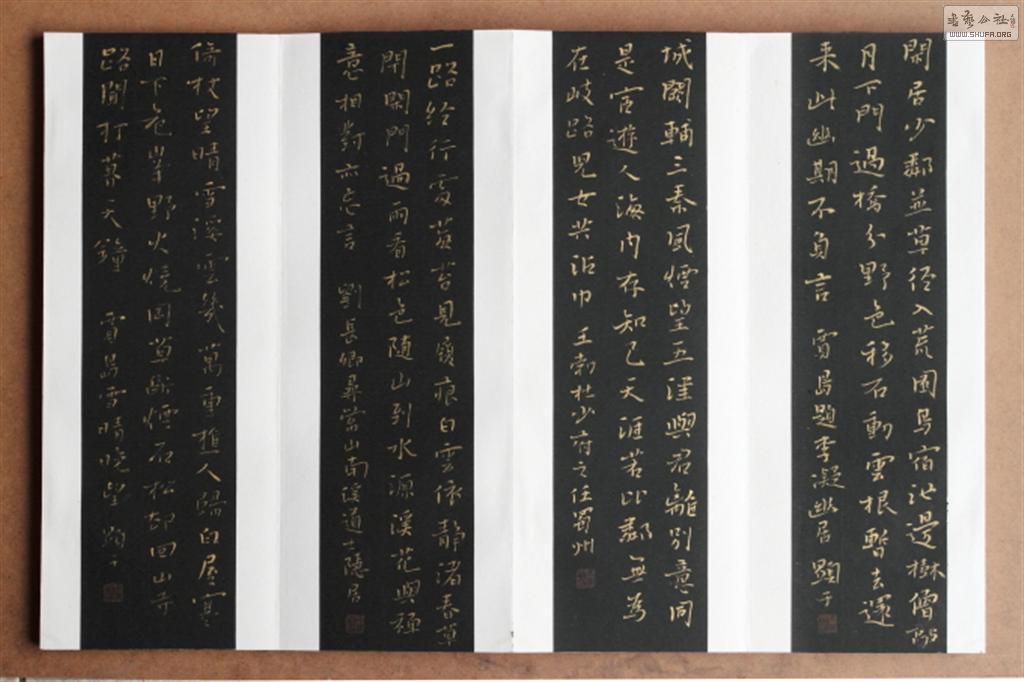 閑居少鄰並草徑入荒園鳥宿池邊樹僧敲
月下門過橋分野色移石動雲根暫去還
来此幽期不負言 賈島題李凝幽居
城闕輔三秦風煙望五津與君離別意同
是宦遊人海内存知己天涯若比鄰無為
在岐路児女共沾巾 王勃杜少府之任蜀州
一路經行處莓苔見履痕白雲依静渚春草
閉閑門過雨看松色随山到水源溪花與禅
意相對亦忘言 劉長卿尋常山南溪道士隱居
倚杖望晴雪溪雲幾萬重樵人歸白屋寒
日下危峯野火燒岡草斷煙石松却回山寺
路聞打暮天鐘 賈島雪晴晚望
書藝公社
WWW.SHUFA.ORG